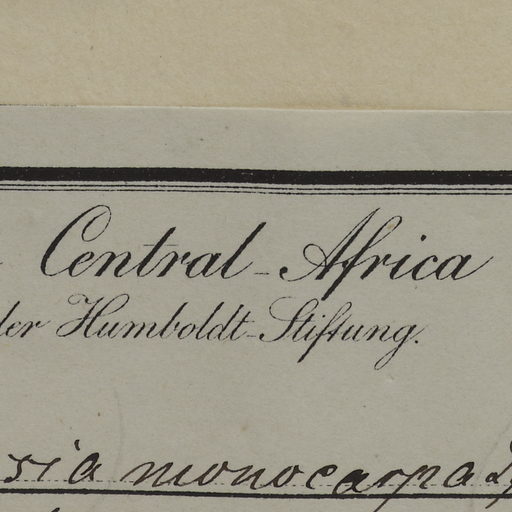 Central-Africa
der Humboldt-Stiftung.
sia monocarpa